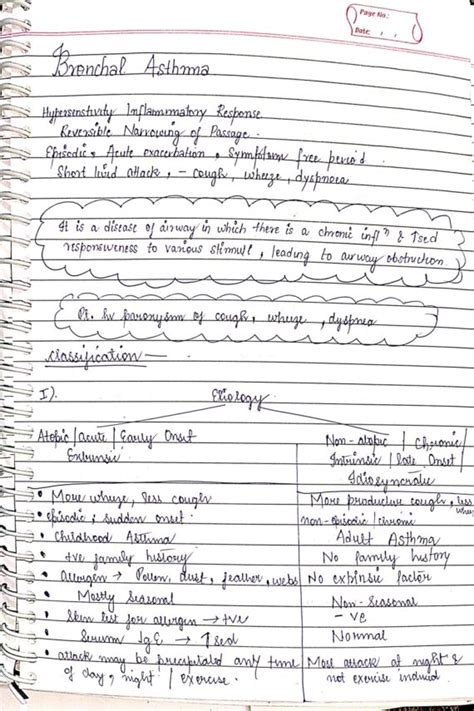 Page No.:
Date:
Bronchal Asthma
Hypersenstivity Inflammatory Response.
Reversible Narrowing of Passage.
Episodic, Acute exacerbation, Symptom free period.
Short livid attack, - cough, wheeze, dyspnoea
It is a disease of airway in which there is a chronic inflⁿ & ↑sed
responsiveness to various stimuli, leading to airway obstruction.
Pt. hv paroxysm of cough, wheeze, dyspnea
Classification —
I). Etiology
Atopic | acute | Early Onset
Extrinsic
Non-atopic | Chronic |
Intrinsic | late Onset |
Idiosyncratic
• More wheeze, less cough
More productive cough, less wheeze
• episodic, sudden onset.
non-episodic | chronic
• Childhood Asthma
Adult Asthma
• +ve family history
No family history
• Allergen → Pollen, dust, feather, webs
No extrinsic factor
• Mostly Seasonal
Non-Seasonal
• Skin test for allergen → +ve
-ve
• Serum IgE → ↑sed
Normal
• attack may be precipitated any time
of day, night | exercise.
More attack at night &
not exercise induced.